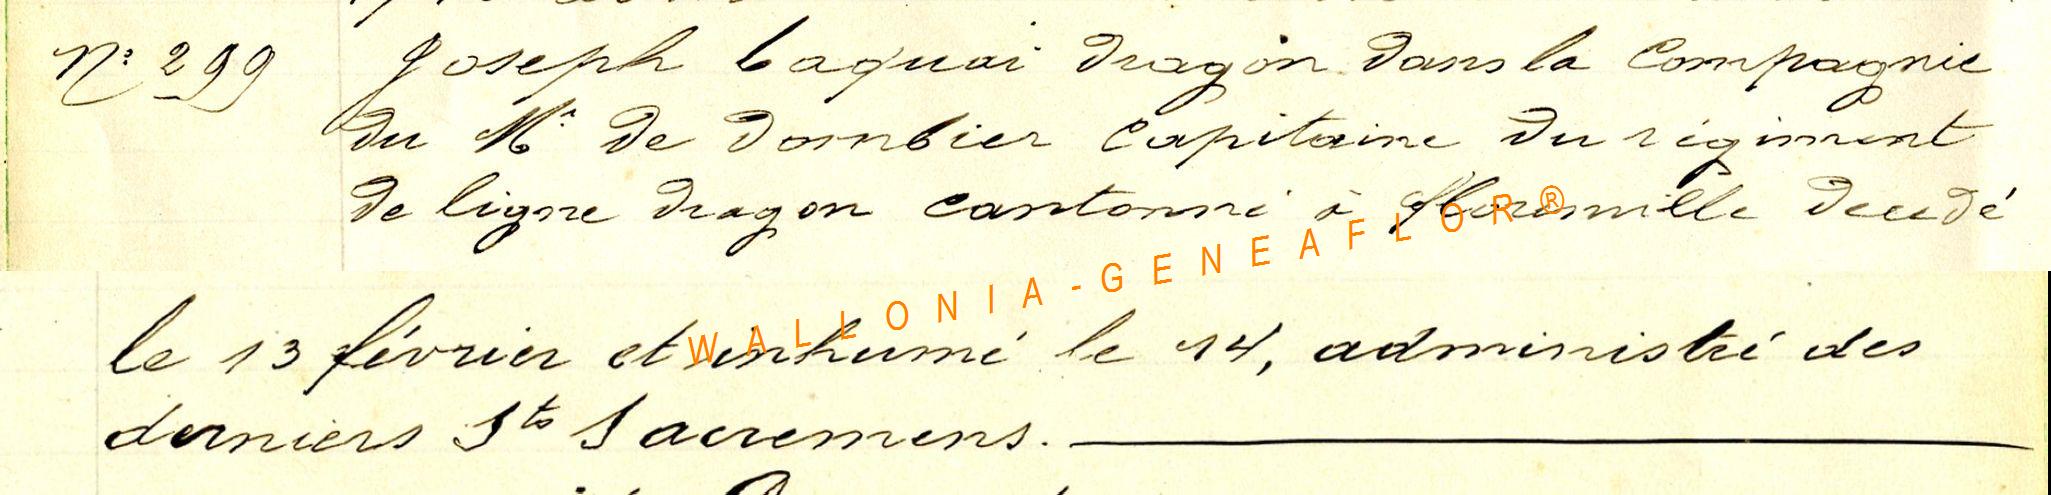 N° 299 Joseph Laquai dragon dans la Compagnie
du Mr de Dombier Capitaine du régiment
de ligne dragon cantonné à décédé
le 13 février et inhumé le 14, administré des
derniers Sts Sacremens.
WALLONIA-GENEAFLOR®